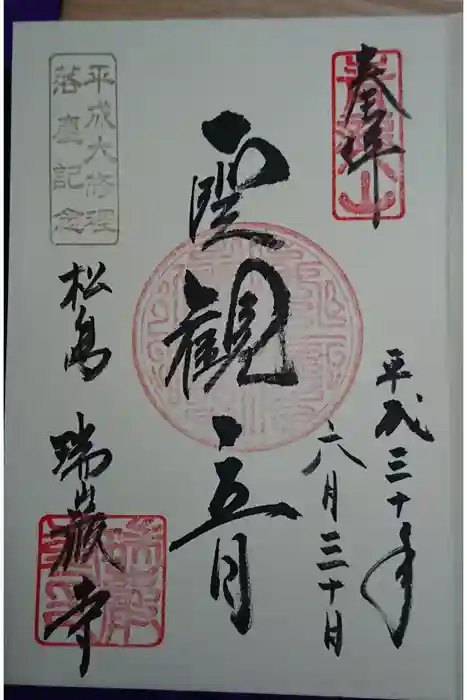 奉拝
青龍山
平成三十年
六月三十日
聖観音
平成大修理
落慶記念
松島 瑞巌寺